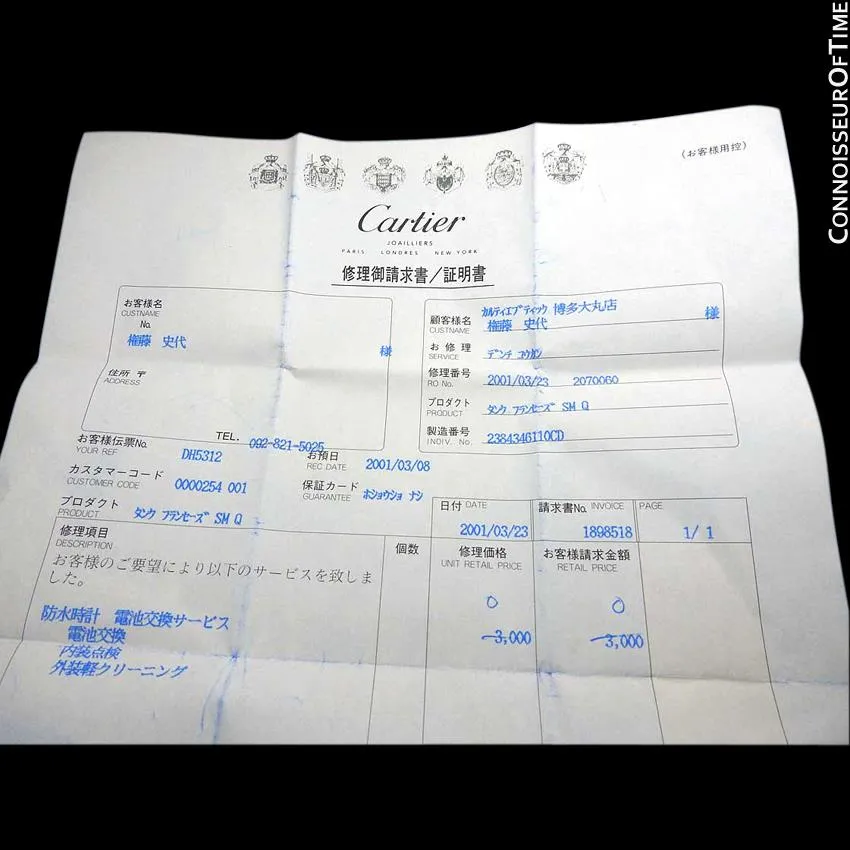 CONNOISSEUROFTIME
(お客様用控)
Cartier
JOAILLIERS
PARIS LONDRES NEW YORK
修理御請求書/証明書
お客様名
CUSTNAME
No.
権藤 史代
様
住所 〒
ADDRESS
TEL. 092-821-5025
顧客様名 カルティエブティック 博多大丸店
CUSTNAME 権藤 史代
様
お修理
SERVICE デンチ コウカン
修理番号
RO No. 2001/03/23 2070060
プロダクト
PRODUCT タンク フランセーズ SM Q
製造番号
INDIV. No. 2384346110CD
お客様伝票No.
YOUR REF DH5312
お預日
REC DATE 2001/03/08
カスタマーコード
CUSTOMER CODE 0000254 001
保証カード
GUARANTEE ホショウショ ナシ
プロダクト
PRODUCT タンク フランセーズ SM Q
日付 DATE
2001/03/23
請求書No. INVOICE
1898518
PAGE
1/ 1
修理項目
DESCRIPTION
個数
修理価格
UNIT RETAIL PRICE
お客様請求金額
RETAIL PRICE
お客様のご要望により以下のサービスを致しま
した。
0 0
防水時計 電池交換サービス
電池交換 3,000 3,000
内装点検
外装軽クリーニング